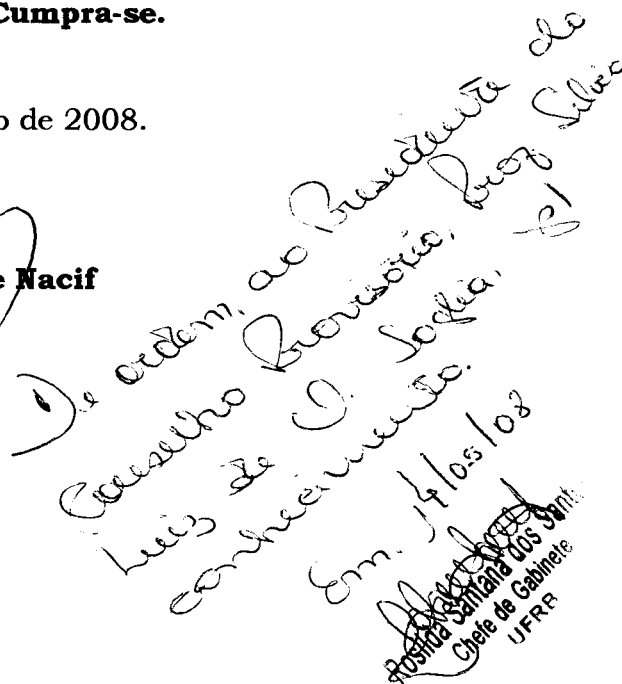 Cumpra-se.
o de 2008.
e Nacif
De ordem, ao Presidente do
Conselho Provisório, Prof. Silvio
Luis de O. Soglia, p/
conhecimento.
Em, 14/05/08
Rosilda Santana dos Sant
Chefe de Gabinete
UFRB